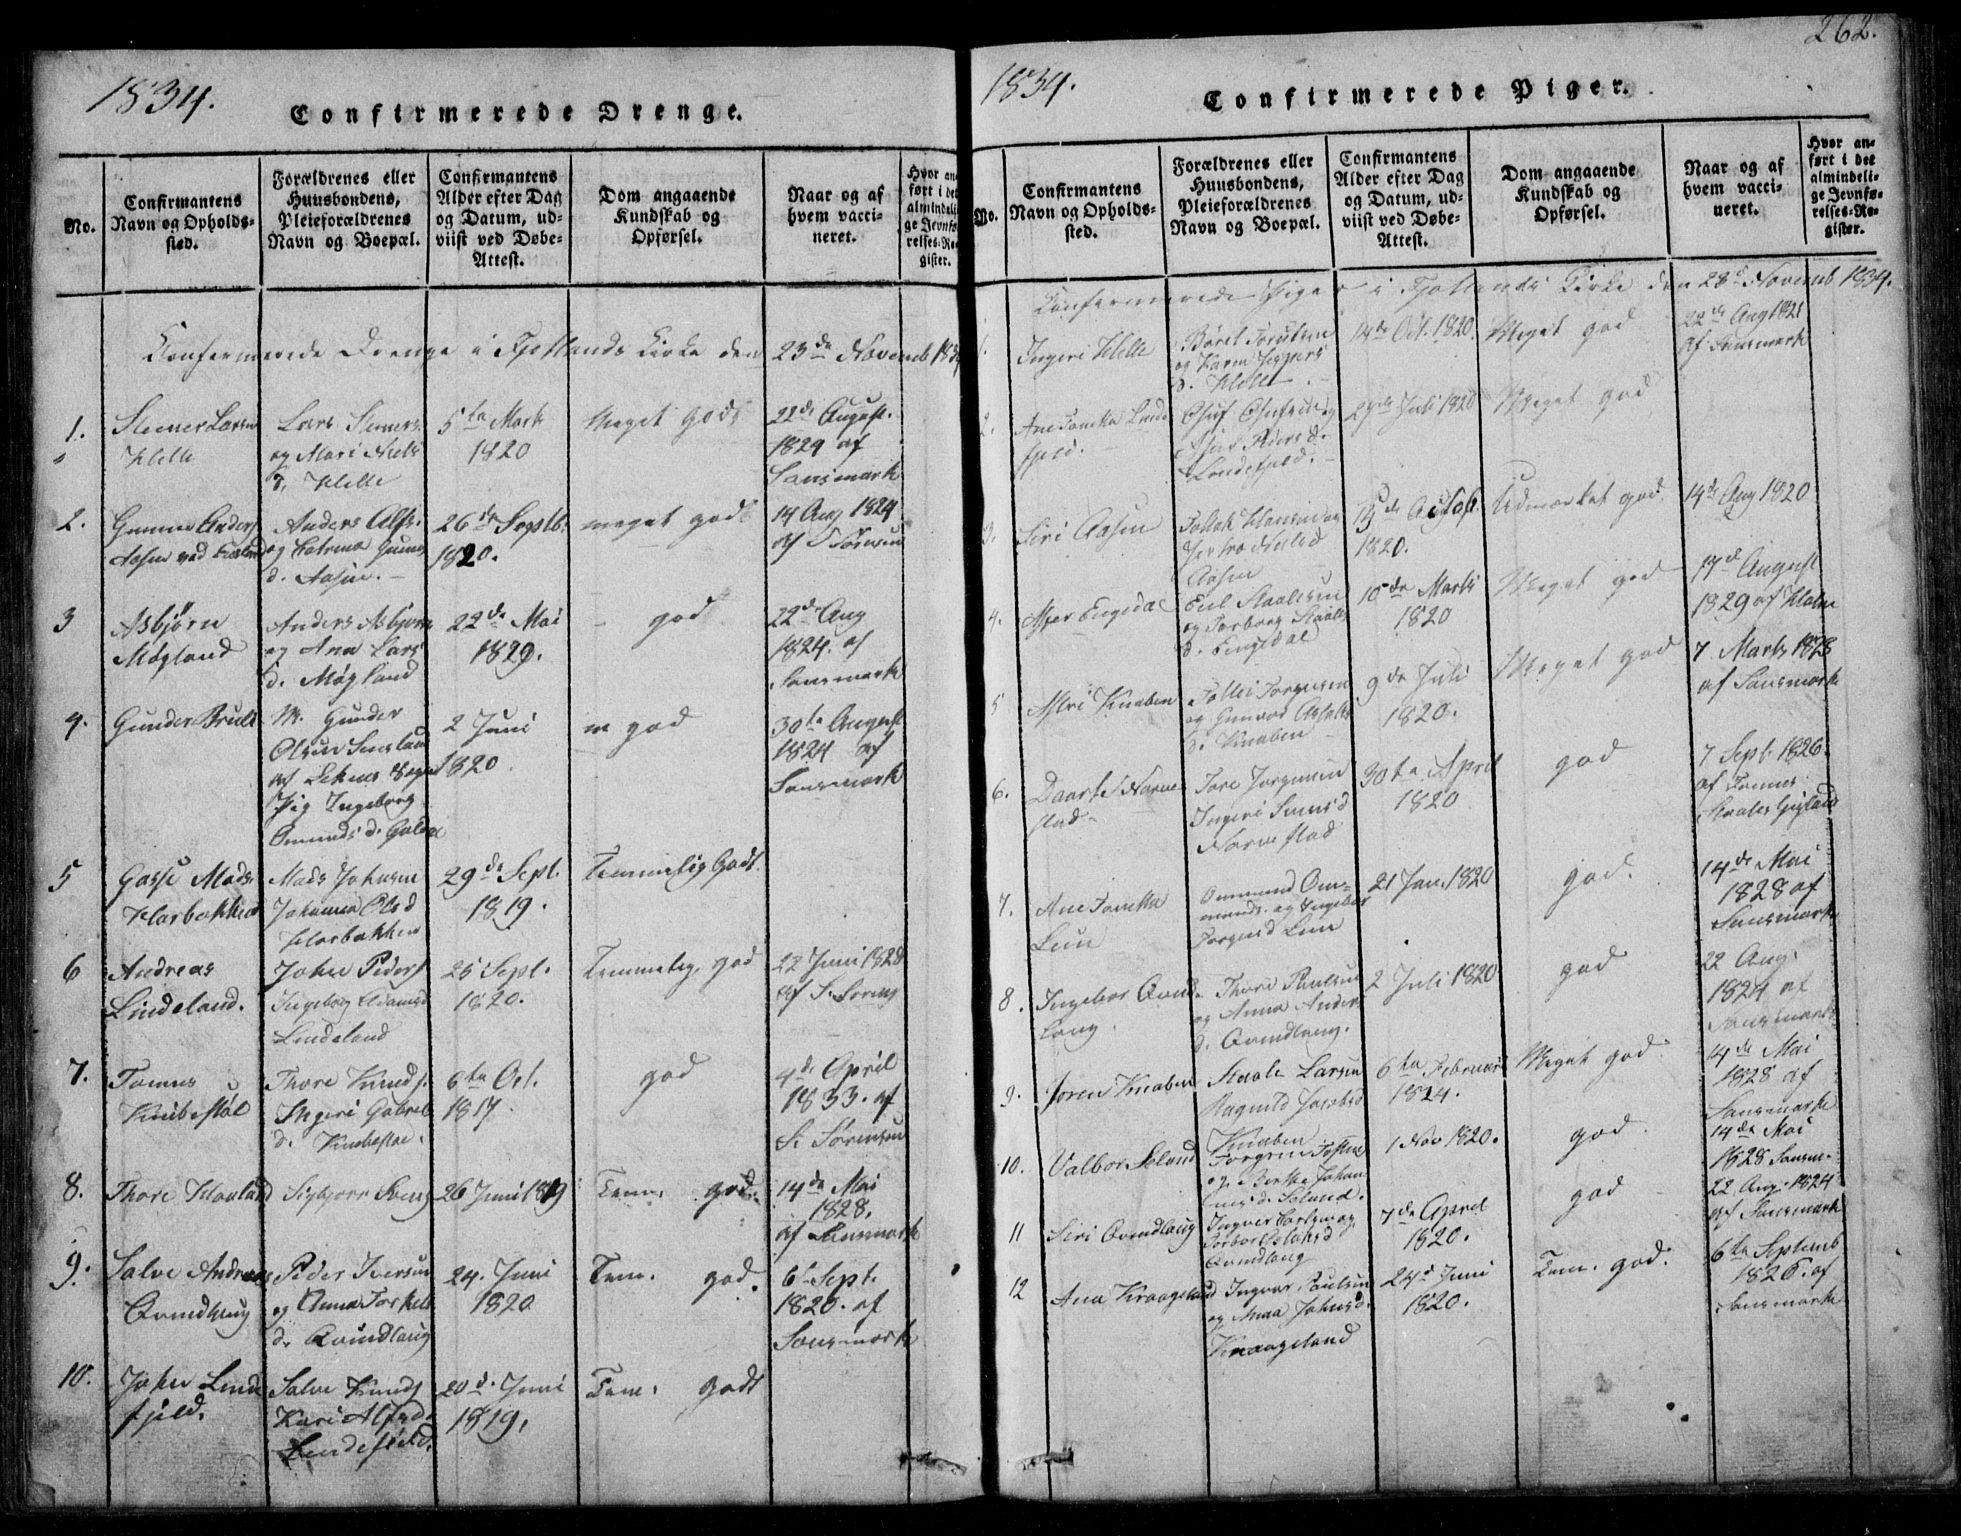 1834.
Confirmerede Drenge.
No.
Confirmantens
Navn og Opholds-
sted.
Forældrenes eller
Huusbondens,
Pleieforældrenes
Navn og Boepæl.
Confirmantens
Alder efter Dag
og Datum, ud-
viist ved Døbe-
Attest.
Dom angaaende
Kundskab og
Opførsel.
Naar og af
hvem vacci-
neret.
Hvor an-
ført i det
almindeli-
ge Jevnfø-
relses-Re-
gister.
Confermerede Drenge i Fjotlands Kirke den 23de Novemb 1834
1.
Steener Larsen
Helle
Lars Steeners
og Mari Niels
d. Helle
5te Marts
1820
Meget Godt
22de August.
1824 af
Sansmark
2.
Gunner Anders
Aasen ved
Anders Alfs.
og Catrina Gunners
d. Aasen.
26de Septb.
1820.
meget godt
14 Aug 1824
af S Sørensen
3
Asbjørn
Møgland
Anders Asbjørn
og Ana Lars
d. Møgland
22de Mai
1829.
god
22d Aug
1824. af
Sansmark
4.
Gunder Bruli
Gunder
Olsen
af
Pig Ingeborg
Omunds d.
2 Juni
1820
m god
30te August
1824 af
Sansmark
5
Gasse Mads.
Harbakken
Mads Johnsen
Johanna Ols d
Harbakken
29de Sept.
1819.
Temmelig Godt.
6
Andreas
Lindeland.
John Peders
Ingeborg Adamsd
Lindeland
25 Sept.
1820.
Temmelig god
22 Juni 1828
af S. Sørens
7.
Tomes
Knibestøl
Thore Knuds.
Ingeri Gabriel
d. Knibestøl.
6te Oct.
1817.
god
4de April
1833. af
S. Sørensen
8.
Thore Houland
Sigbjørn Svens
26 Juni 1819
Tem. god.
14de Mai
1828.
af Sansmark
9.
Salve Andreas
Qvindlaug
Peder Iversen
og Anna Torkels
d. Qvindlaug
24. Juni
1820
Tem. god.
6t Sept.
1820. af
Sansmark
10.
John Linde
fjeld.
Salve Knuds
Kari Alfsd.
Lindefjeld.
20de Juni
1819.
Tem. godt
262.
1834.
Confirmerede Piger.
No.
Confirmantens
Navn og Opholds-
sted.
Forældrenes eller
Huusbondens,
Pleieforældrenes
Navn og Boepæl.
Confirmantens
Alder efter Dag
og Datum, ud-
viist ved Døbe-
Attest.
Dom angaaende
Kundskab og
Opførsel.
Naar og af
hvem vacci-
neret.
Hvor an-
ført i det
almindeli-
ge Jevnfø-
relses-Re-
gister.
Confermerede Piger i Fjotlands Kirke den 23d Novemb 1834.
1.
Ingeri Helle
Børel Torstens
og Karen Jespers
d. Helle.
14de Oct. 1820.
Meget god
22de Aug 1821
af Sansmark
2.
Ane Tonetta Linde
fjeld.
Oluf
Lindefjeld.
24de Juli 1820
Meget god
3.
Siri Aasen
Tollak Hansen og
Niels d
Aasen
1820.
Udmærket god
14de Aug 1820
4.
Asser Engedal
Eul Staalesen
og Torborg Staales
d. Engedal
10de Marts
1820
Meget god
17de August
1829 af
5
Asbri Knaben
Tollei Torgersen
og Gunvor
d. Knaben
9de Juli
1820.
Meget god
7 Marts 1828
af Sansmark
6.
Daarte Narve
stad.
Tore Jorgensen
Ingeri Svens d
Narvestad
30te April
1820
god
7 Sept. 1826.
af Tonnes
Staales
7.
Ane Tonetta
Leen
Ommund Om-
munds. og Ingebor
Torgersd Leen
21 Jan. 1820
god.
14de Mai
1828 af
Sansmark
8.
Ingebor Qvind-
laug.
Thore Paulsen
og Anna Anders
d. Qvindlaug.
2 Juli 1820
god
22 Aug.
1824 af
Sansmark
9.
Joren Knaben
Staale Larsen
Ragnild Jacobsd
Knaben
6te Februar
1824.
Meget god
14de Mai
1828 af
Sansmark
10.
Valbor Seland
Torgrim
og Berthe Johan
nes d. Seland.
1 Nov 1820.
god
14de Mai
1828 Sansm.
11
Siri Qvindlaug
Ingver
Torbor
Qvindlaug
7de April
1820.
god
22 Aug. 1824
af Sansmark
12
Ana Kraageland
Ingvar Paulsen
og Anna Johnsd.
Kraageland
24d Juni
1820.
Tem. god.
6te Septemb
1826. af
Sansmark